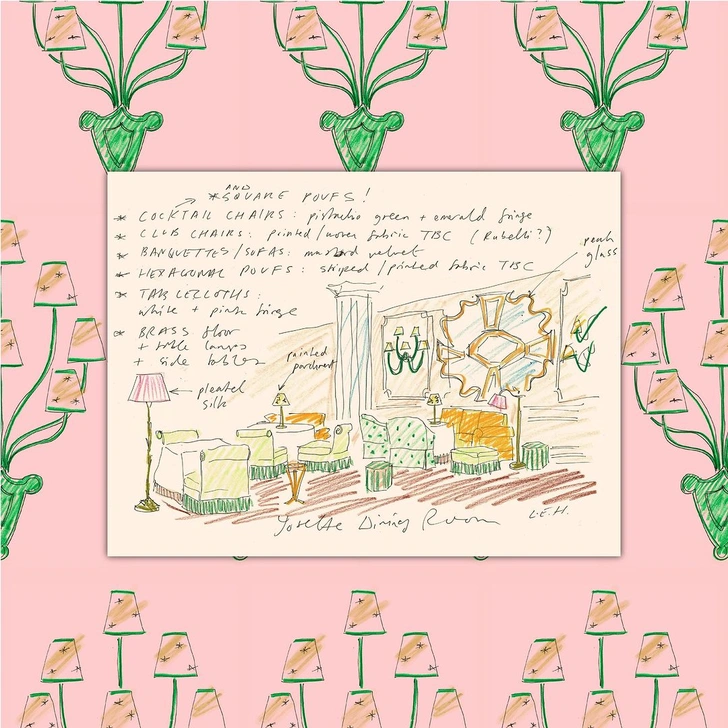 AND
* SQUARE POUFS!
* COCKTAIL CHAIRS: pistachio green + emerald fringe
* CLUB CHAIRS: printed/woven fabric TBC (Rubelli?)
* BANQUETTES/SOFAS: mustard velvet
* HEXAGONAL POUFS: striped/printed fabric TBC
* TABLECLOTHS:
white + pink fringe
* BRASS floor
+ table lamps
+ side tables
peach
glass
painted
parchment
pleated
silk
Josette Dining Room
L.E.H.